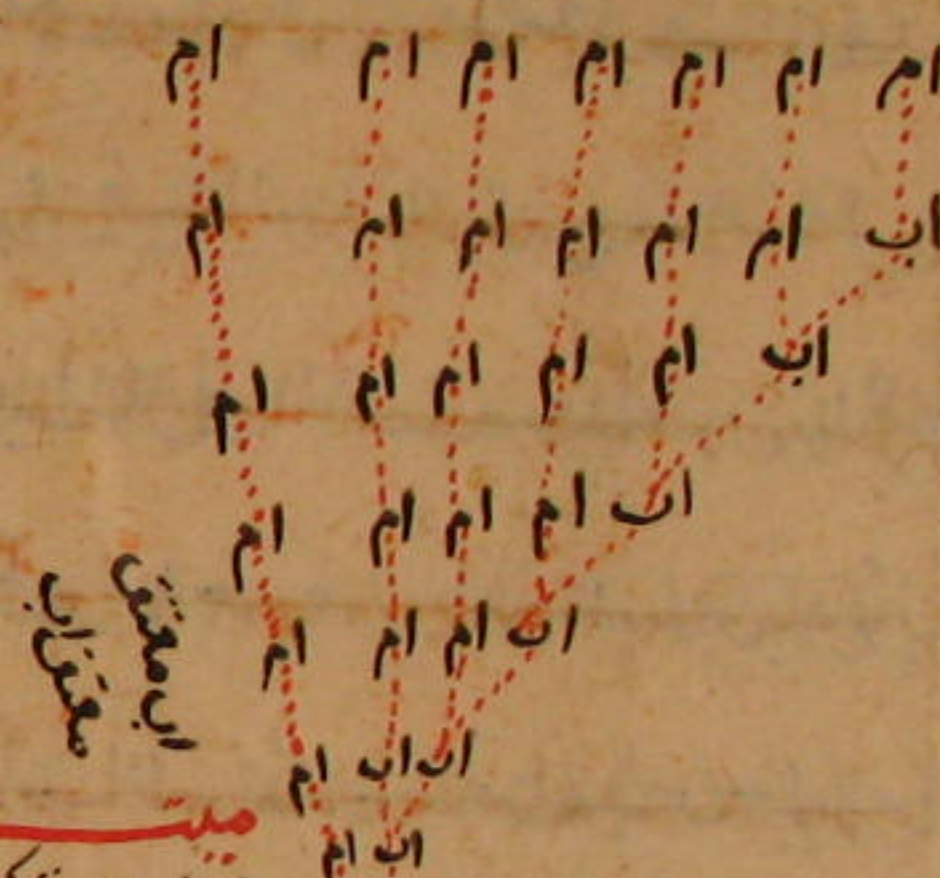 ام ام ام ام ام ام ام
اب ام ام ام ام ام ام
اب ام ام ام ام ام
اب ام ام ام ام
اب ام ام ام
اب اب ام
اب ام
اب معتق
معتق اب
ميت